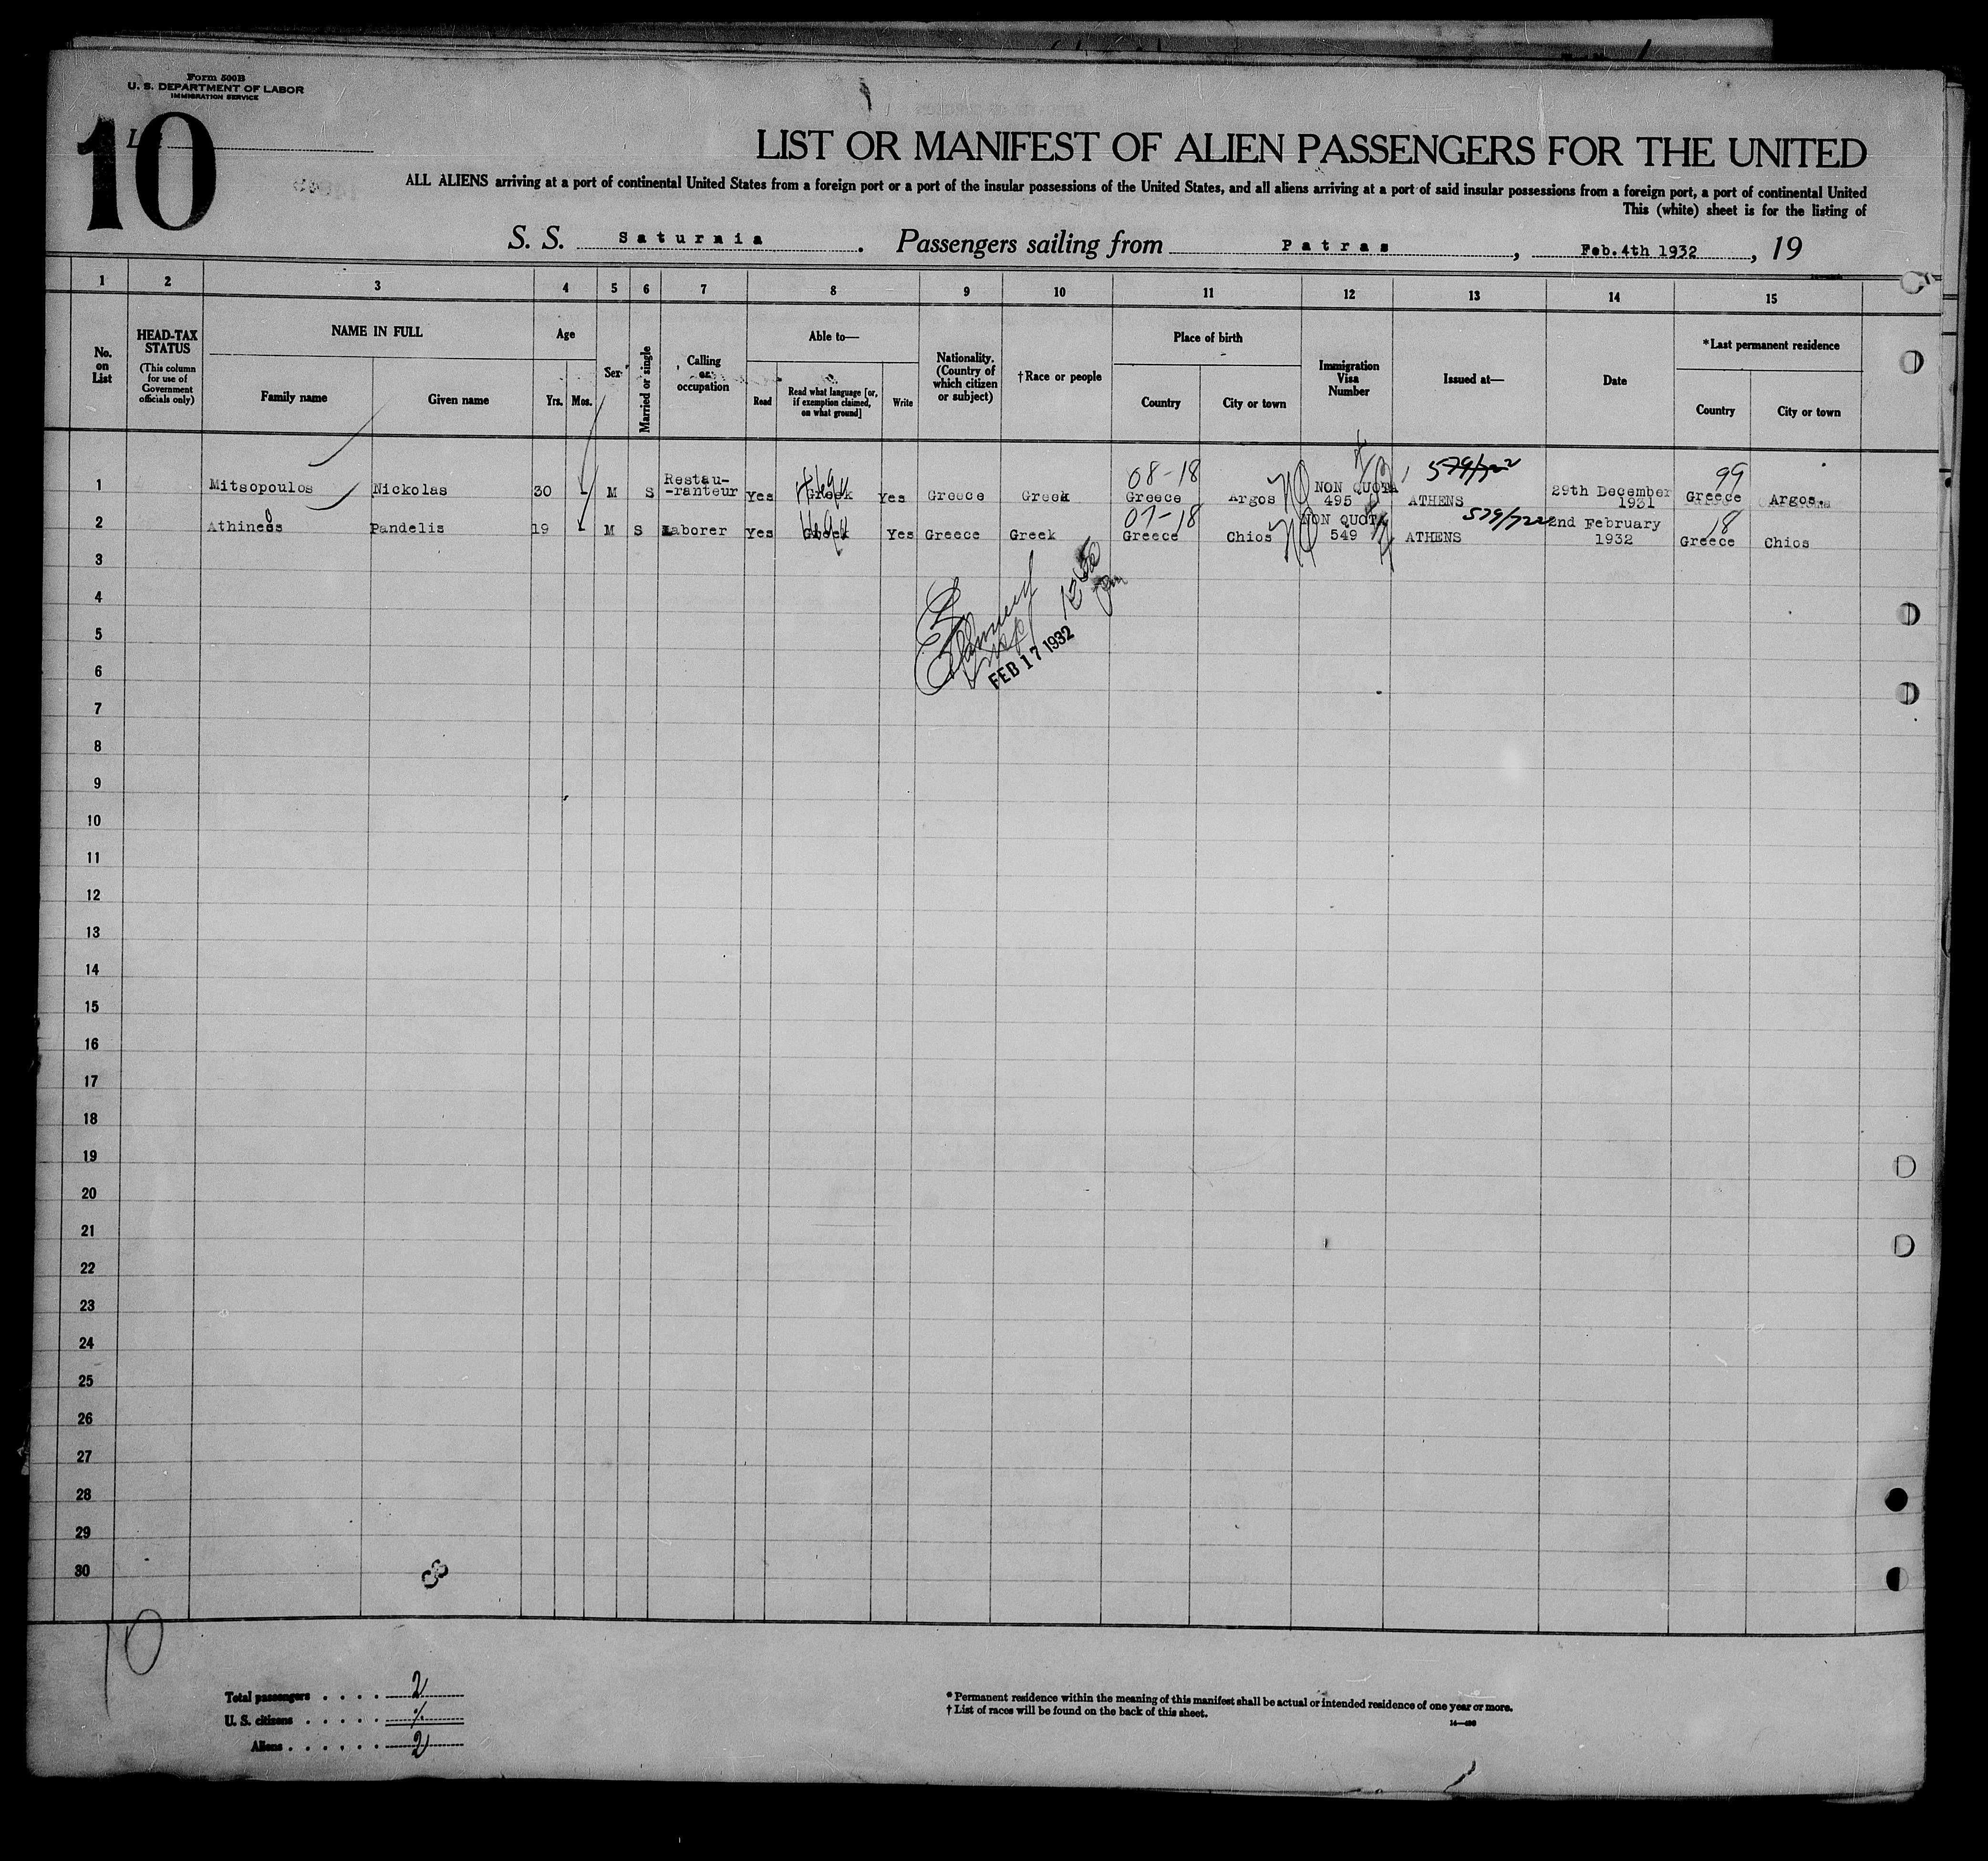 Form 500B
U. S. DEPARTMENT OF LABOR
IMMIGRATION SERVICE
10
LIST OR MANIFEST OF ALIEN PASSENGERS FOR THE UNITED
ALL ALIENS arriving at a port of continental United States from a foreign port or a port of the insular possessions of the United States, and all aliens arriving at a port of said insular possessions from a foreign port, a port of continental United
This (white) sheet is for the listing of
S. S. Saturnia. Passengers sailing from Patras, Feb.4th 1932, 19
1 2 3 4 5 6 7 8 9 10 11 12 13 14 15
No. on List
HEAD-TAX STATUS
(This column for use of Government officials only)
NAME IN FULL
Family name Given name
Age
Yrs. Mos.
Sex
Married or single
Calling or occupation
Able to—
Read Read what language [or, if exemption claimed, on what ground] Write
Nationality. (Country of which citizen or subject)
†Race or people
Place of birth
Country City or town
Immigration Visa Number
Issued at—
Date
*Last permanent residence
Country City or town
08-18 99
1 Mitsopoulos Nickolas 30 M S Restau--ranteur Yes Greek Yes Greece Greek Greece Argos NON QUOTA 495 ATHENS 29th December 1931 Greece Argos.
07-18 579/722 18
2 Athineos Pandelis 19 M S Laborer Yes Greek Yes Greece Greek Greece Chios NON QUOTA 549 ATHENS 2nd February 1932 Greece Chios
3
4
5
6
FEB 17 1932
7
8
9
10
11
12
13
14
15
16
17
18
19
20
21
22
23
24
25
26
27
28
29
30
10
Total passengers . . . . 2
U. S. citizens . . . . .
Aliens . . . . . . 2
* Permanent residence within the meaning of this manifest shall be actual or intended residence of one year or more.
† List of races will be found on the back of this sheet.